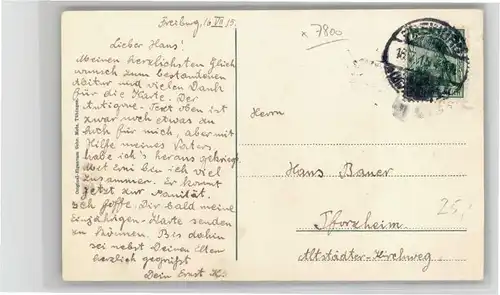 Freiburg, 16 VII 15.
Lieber Hans!
Meinen herzlichsten Glück
wunsch zum bestandenen
Abitur und vielen Dank
für die Karte. Der
Antigone-Text oben ist
zwar noch etwas zu
hoch für mich, aber mit
Hilfe meines Vaters
habe ich's heraus gekriegt.
Mit Erni bin ich viel
zusammen. Er kommt
jetzt zur Sanität.
Ich hoffe, Dir bald meine
Einjährigen-Karte senden
zu können. Bis dahin
sei nebst Deinen Elten
herzlich gegrüßt
Dein Ernst
x 7800
Herrn
Hans Bauer
Pforzheim
Altstädter-Kirchweg
25,-